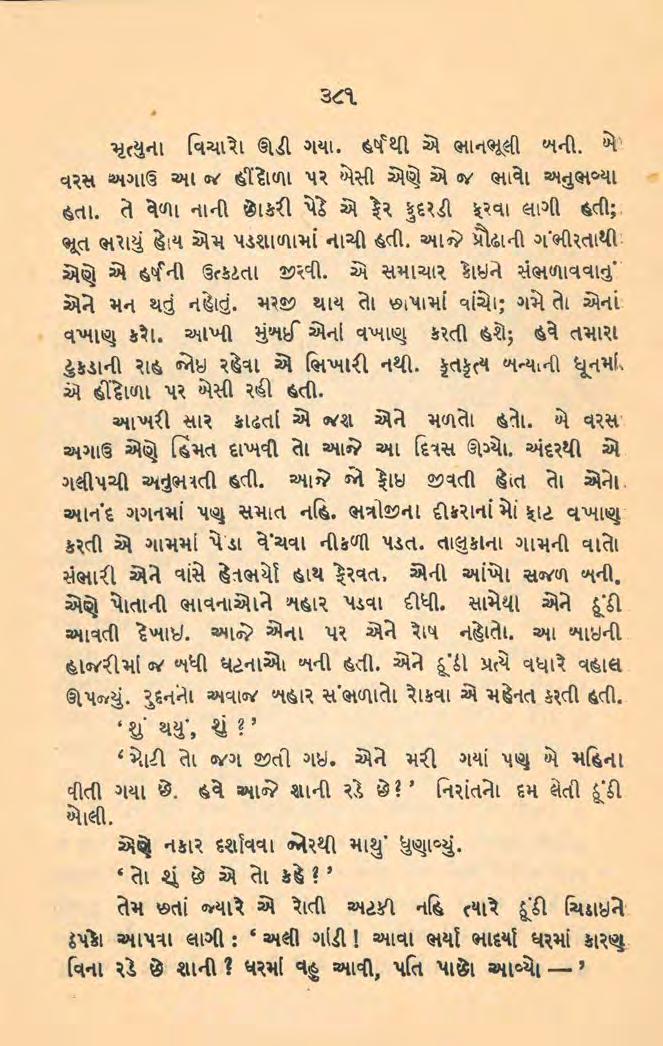 ૩૮૧
મૃત્યુના વિચારો ઊડી ગયા. હર્ષથી એ ભાનભૂલી બની. બે
વરસ અગાઉ આ જ હીંદોળા પર બેસી એણે એ જ ભાવો અનુભવ્યા
હતા. તે વેળા નાની છોકરી પેઠે એ ફેર ફુદરડી ફરવા લાગી હતી;
ભૂત ભરાયું હોય એમ પડશાળામાં નાચી હતી. આજે પ્રૌઢાની ગંભીરતાથી
એણે એ હર્ષની ઉત્કટતા જીરવી. એ સમાચાર કોઇને સંભળાવવાનું
એને મન થતું નહોતું. મરજી થાય તો છાપામાં વાંચો; ગમે તો એનાં
વખાણ કરો. આખી મુંબઈ એનાં વખાણ કરતી હશે; હવે તમારા
ટુકડાની રાહ જોઇ રહેવા એ ભિખારી નથી. કૃતકૃત્ય બન્યાની ધૂનમાં
એ હીંદોળા પર બેસી રહી હતી.
આખરી સાર કાઢતાં એ જશ એને મળતો હતો. બે વરસ
અગાઉ એણે હિંમત દાખવી તો આજે આ દિવસ ઊગ્યો. અંદરથી એ
ગલીપચી અનુભવતી હતી. આજે જો ફોઇ જીવતી હોત તો એનો
આનંદ ગગનમાં પણ સમાત નહિ. ભત્રીજીના દીકરાનાં મોં ફાટ વખાણ
કરતી એ ગામમાં પેંડા વેંચવા નીકળી પડત. તાલુકાના ગામની વાતો
સંભારી એને વાંસે હેતભર્યો હાથ ફેરવત. એની આંખો સજળ બની.
એણે પોતાની ભાવનાઓને બહાર પડવા દીધી. સામેથી એને ઠૂંઠી
આવતી દેખાઇ. આજે એના પર એને રોષ નહોતો. આ બાઇની
હાજરીમાં જ બધી ઘટનાઓ બની હતી. એને ઠૂંઠી પ્રત્યે વધારે વહાલ
ઊપજ્યું. રુદનનો અવાજ બહાર સંભળાતો રોકવા એ મહેનત કરતી હતી.
‘શું થયું, શું ?’
‘મોટી તો જગ જીતી ગઇ. એને મરી ગયાં પણ બે મહિના
વીતી ગયા છે. હવે આજે શાની રડે છે?’ નિરાંતનો દમ લેતી ઠૂંઠી
બોલી.
એણે નકાર દર્શાવવા જોરથી માથું ધુણાવ્યું.
‘તો શું છે એ તો કહે?’
તેમ છતાં જ્યારે એ રોતી અટકી નહિ ત્યારે ઠૂંઠી ચિડાઇને
ઠપકો આપવા લાગી : ‘અલી ગાંડી! આવા ભર્યા ભાદર્યા ઘરમાં કારણ
વિના રડે છે શાની? ઘરમાં વહુ આવી, પતિ પાછો આવ્યો —’